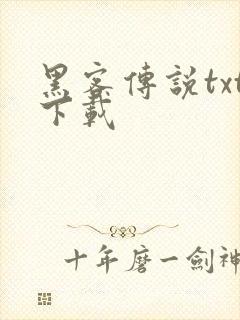 黑客傳説txt
下載
十年磨一劍神